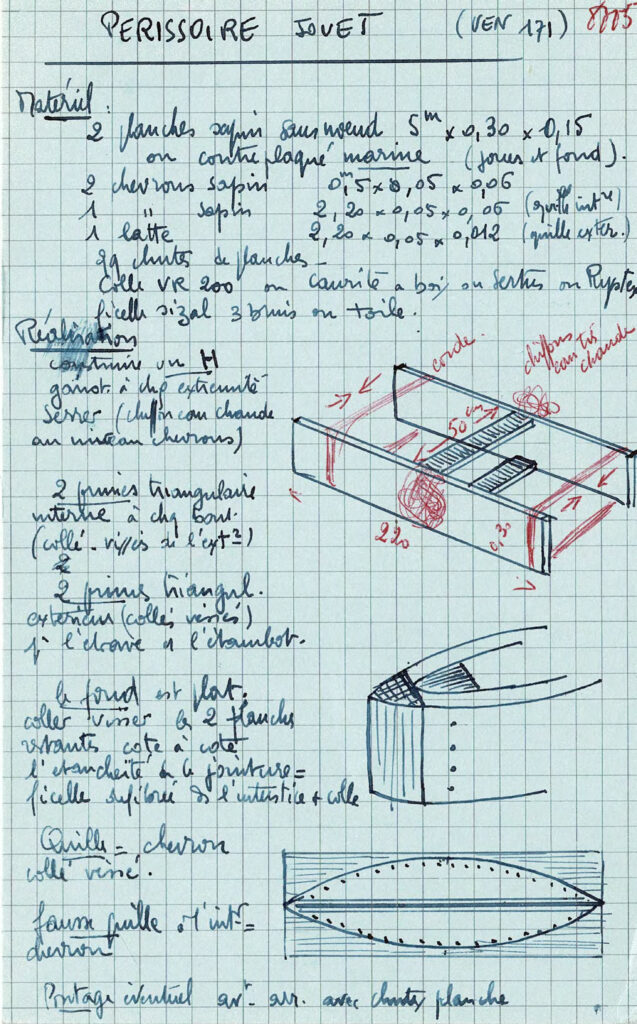 PERISSOIRE JOUET (VEN 171) 8005
Matériel :
2 planches sapin sans noeud 5m x 0,30 x 0,15
ou contreplaqué marine (joues et fond).
2 chevrons sapin 0m,5 x 0,05 x 0,06
1 " sapin 2,20 x 0,05 x 0,06 (quille intre)
1 latte 2,20 x 0,05 x 0,012 (quille exter.)
qq chutes de planches -
Colle VR 200 ou Caurité a bois ou
ficelle sizal 3 brins ou toile.
Réalisation
construire un H
garrot à chq extremité
Serrer (chiffon eau chaude
au niveau chevrons)
corde.
chiffons
eau très
chaude
50 cm
220
0,30
2 prismes triangulaire
interne à chq bout.
(collé - vissés de l'extr)
2
2 prismes triangul.
exterieurs (collés vissés)
pr l'etrave et l'étambot.
le fond est plat.
coller visser les 2 planches
restantes cote à coté
l'etancheité de la jointure =
ficelle ds l'interstice + colle
Quille = chevron
collé vissé.
fausse quille à l'intr =
chevron
Pontage éventuel avt. arr. avec chutes planche